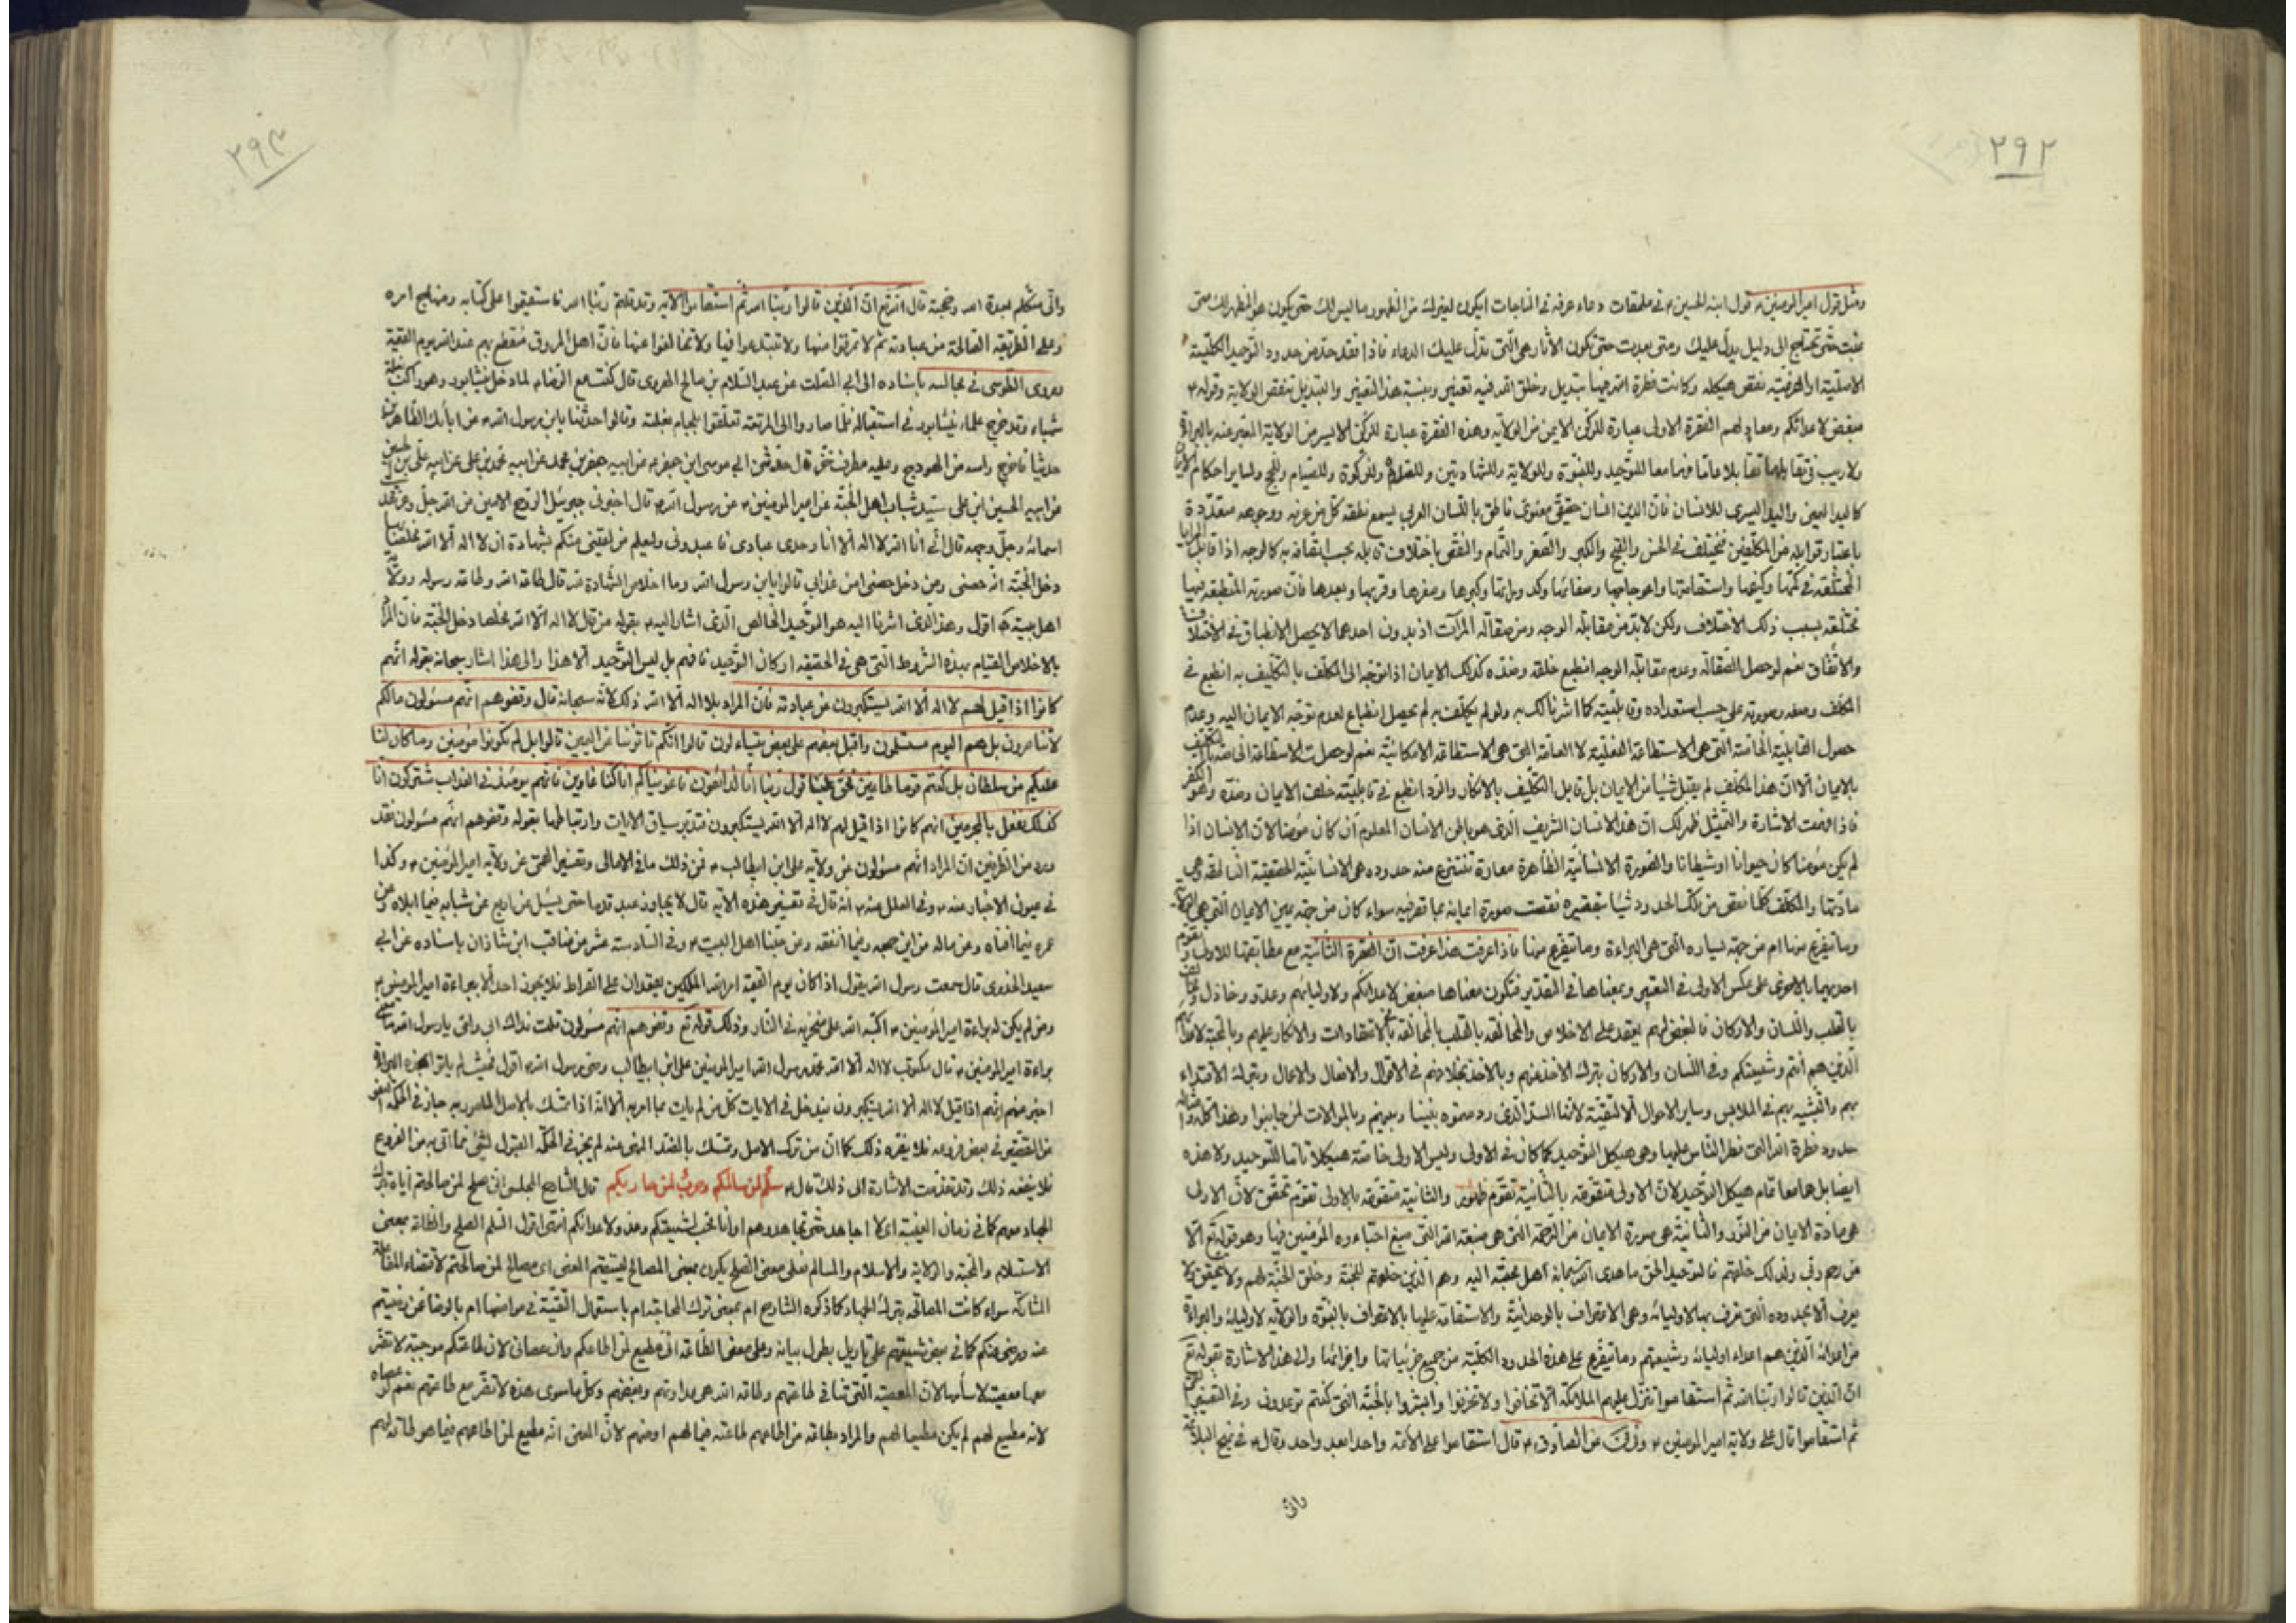 ٢٩٢
ومثل قول امير المومنين ع قول ابنه الحسين ع فى ملحقات دعاء عرفه فى المناجات ايكون لغيرك من الظهور ما ليس لك حتى يكون هو المظهر لك متى
غبت حتى تحتاج الى دليل يدل عليك ومتى بعدت حتى تكون الآثار هى التى تدل عليك الدعاء فاذا فقد حد من حدود التوحيد الكلية
الاصلية او الفرعية نقص هيكله وكانت فطرة الله فيها تبديل وخلق الله فيه تغيير وبنسبة هذا التغيير والتبديل تنقص الولاية وقوله ع
مبغض لاعدائكم ومعاد لهم الفقرة الاولى عبارة للركن الايمن من الولاية وهذه الفقرة عبارة للركن الايسر من الولاية المعبر عنه بالبراءة
ولا ريب فى تقابلهما تقابلا عاما فهما معا للتوحيد وللنبوة وللولاية وللشهادتين وللصلوة وللزكوة وللصيام وللحج ولساير احكام
كاليد اليمين واليد اليسرى للانسان فان الدين انسان حقيقى معنوى ناطق باللسان العربى يسمع نطقه كل من عرفه ووجهه متعددة
باعتبار قوابله من المكلفين فيختلف فى الحسن والقبح والكبر والصغر والتمام والنقص باختلاف قابله بحسب اتصافه به كالوجه اذا قابل المرايا
المختلفة فى كمها وكيفها واستقامتها واعوجاجها وصفائها وكدوراتها وكبرها وصغرها وقربها وبعدها فان صورته المنطبعه فيها
مختلفه بسبب ذلك الاختلاف ولكن لابد من مقابلة الوجه ومن صقالة المرآت اذ بدون احدهما لا يحصل الانطباق فى الاختلاف
والاتفاق نعم لو حصل الصقالة وعدم مقابلة الوجه انطبع خلفه وضده كذلك الايمان اذا توجه الى المكلف بالتكليف به انطبع فى
المكلف وصفه وصورته على حسب استعداده وقابليته كما اشرنا لك به ولو لم يكلف به لم يحصل انطباع لعدم توجه الايمان اليه وعدم
حصول القابلية الخاصة التى هى الاستطاعة الفعلية لا العامة التى هى الاستطاعة الامكانية نعم لو حصلت الاستطاعة الخاصة بالتكليف
بالايمان الا ان هذا المكلف لم يقبل شيئا من الايمان بل قابل التكليف بالانكار والرد انطبع فى قابليته خلف الايمان وضده وهو الكفر
فاذا فهمت الاشارة والتمثيل ظهر لك ان هذا الانسان الشريف الذى هو باطن الانسان المعلوم ان كان مؤمنا لان الانسان اذا
لم يكن مؤمنا كان حيوانا او شيطانا والصورة الانسانية الظاهرة معارة تنتزع منه حدوده هى الانسانية الحقيقية الناطقة وهى
مادتها والمكلف كلما نقص من تلك الحدود شيئا بتقصيره نقصت صورة ايمانه عما قصر فيه سواء كان من جهة يمين الايمان التى هى الولاية
وما تفرع منها ام من جهة يساره التى هى البراءة وما تفرع منها فاذا عرفت هذا عرفت ان الفقرة الثانية مع مطابقتها للاولى وتقوم
احديهما بالاخرى على عكس الاولى فى التعبير وبمعناها فى التقدير فتكون معناها مبغض لاعدائكم ولاوليائهم وعدو وخاذل
بالقلب واللسان والاركان فالبغض لهم بعقد على الاخلاص والمخالفة بالقلب بالمخالفة بالاعتقادات والانكار عليهم وبالمحبة لاعدائهم
الذين هم انتم وشيعتكم وفى اللسان والاركان بترك الاخذ عنهم وبالاخذ بخلافهم فى الاقوال والافعال والاعمال وبترك الاقتداء
بهم والتشبه بهم فى الملابس وساير الاحوال الا للتقية لانها السد الذى ردمتموه بيننا وبينهم وبالموالات لمن جانبوا وهذا كله وامثاله
حدود فطرة الله التى فطر الناس عليها وهى هيكل التوحيد كما كان فى الاولى وليس الاولى خاصة هيكلا تاما للتوحيد ولا هذه
ايضا بل هما معا تمام هيكل التوحيد لان الاولى متقومة بالثانية تقوم ظهور والثانية متقومة بالاولى تقوم تحقق لان الاولى
هى مادة الايمان من النور والثانية هى صورة الايمان من الرحمة التى هى صبغة الله التى صبغ احباءه المؤمنين فيها وهو قوله تع الا
من رحم ربى ولذلك خلقهم فالتوحيد الحق ما هدى الله سبحانه اهل محبته اليه وهم الذين خلقهم للمحبة وخلق المحبة لهم ولا يتحقق ولا
يعرف الا بحدوده التى تعرف بها لاوليائه وهى الاعتراف بالوحدانية والاستقامة عليها بالاعتراف بالنبوة والولاية لاوليائه والبراءة
من اعدائه الذين هم اعداء اوليائه وشيعتهم وما تفرع على هذه الحدود الكلية من جميع جزئياتها واجزائها والى هذا الاشارة بقوله تع
ان الذين قالوا ربنا الله ثم استقاموا تتنزل عليهم الملائكة الا تخافوا ولا تحزنوا وابشروا بالجنة التى كنتم توعدون وفى التفسير
ثم استقاموا قال على ولاية امير المومنين ع وفى عن الصادق ع قال استقاموا على الائمة واحدا بعد واحد وقال ع فى نهج البلاغة
وانى
٢٩٣
وانى متكلم بعدة الله وحجته قال الله تع ان الذين قالوا ربنا الله ثم استقاموا الآية وقد قلتم ربنا الله فاستقيموا على كتابه ومنهاج امره
وعلى الطريقة الصالحة من عبادته ثم لا تمرقوا منها ولا تبتدعوا فيها ولا تخالفوا عنها فان اهل المروق منقطع بهم عند الله يوم القيمة
وروى الطوسى فى مجالسه باسناده الى ابى الصلت عن عبد السلام بن صالح الهروى قال كنت مع الرضا ع لما دخل نيشابور وهو راكب بغلة
شهباء وقد خرج علماء نيشابور فى استقباله فلما صاروا الى المرتعة تعلقوا بلجام بغلته وقالوا حدثنا يابن رسول الله ص عن ابائك الطاهرين
حديثا فاخرج راسه من الهودج وعليه مطرف خز فقال حدثنى ابى موسى ابن جعفر ع عن ابيه جعفر بن محمد عن ابيه محمد بن على عن ابيه على بن الحسين
عن ابيه الحسين ابن على سيد شباب اهل الجنة عن امير المومنين ع عن رسول الله ص قال اخبرنى جبرئيل الروح الامين عن الله جل وعز تقدست
اسمائه وجل وجهه قال انى انا الله لا اله الا انا وحدى عبادى فاعبدونى وليعلم من لقينى منكم بشهادة ان لا اله الا الله مخلصا بها
دخل الجنة انه حصنى ومن دخل حصنى امن عذابى قالوا يابن رسول الله وما اخلاص الشهادة لله قال طاعة الله وطاعة رسوله وولاية
اهل بيته ع اقول وهذا الذى اشرنا اليه هو التوحيد الخالص الذى اشار اليه ع بقوله من قال لا اله الا الله مخلصا دخل الجنة فان المراد
بالاخلاص القيام بهذه الشروط التى هى فى الحقيقة اركان التوحيد فافهم بل ليس التوحيد الا هذا والى هذا اشار سبحانه بقوله انهم
كانوا اذا قيل لهم لا اله الا الله يستكبرون عن عبادته فان المراد بلا اله الا الله ذلك لانه سبحانه قال وقفوهم انهم مسئولون مالكم
لا تناصرون بل هم اليوم مستسلمون واقبل بعضهم على بعض يتساءلون قالوا انكم كنتم تاتوننا عن اليمين قالوا بل لم تكونوا مؤمنين وما كان لنا
عليكم من سلطان بل كنتم قوما طاغين فحق علينا قول ربنا انا لذائقون فاغويناكم انا كنا غاوين فانهم يومئذ فى العذاب مشتركون انا
كذلك نفعل بالمجرمين انهم كانوا اذا قيل لهم لا اله الا الله يستكبرون فتدبر سياق الايات وارتباطها بقوله وقفوهم انهم مسئولون فقد
ورد من الطرفين ان المراد انهم مسئولون عن ولاية على ابن ابيطالب ع فمن ذلك ما فى الامالى وتفسير القمى عن ولاية امير المؤمنين ع وكذا
فى عيون الاخبار عنه ع وفى العلل عنه ع انه قال فى تفسير هذه الآية قال لا يجاوز عبد قدما حتى يسئل عن اربع عن شبابه فيما ابلاه وعن
عمره فيما افناه وعن ماله من اين جمعه وفيما انفقه وعن حبنا اهل البيت ع وفى السادسة عشر من مناقب ابن شاذان باسناده عن ابى
سعيد الخدرى قال سمعت رسول الله يقول اذا كان يوم القيمة امر الله الملكين يقعدان على الصراط فلا يجوز احد الا ببراءة امير المومنين ع
ومن لم يكن له براءة امير المؤمنين ع اكبه الله على منخريه فى النار وذلك قوله تع وقفوهم انهم مسئولون قلت فداك ابى وامى يا رسول الله ما معنى
براءة امير المومنين ع قال مكتوب لا اله الا الله محمد رسول الله امير المومنين على ابن ابيطالب وصى رسول الله ص اقول
اخبر عنهم انهم اذا قيل لا اله الا الله يستكبرون فيدخل فى الايات كل من لم يات بما امر به الا انه اذا تمسك بالاصل المامور به جاز فى الحكمة العفو
عن التقصير فى بعض فروعه فلا يضره ذلك كما ان من ترك الاصل وتمسك بالضد المنهى عنه لم يجز فى الحكمة القبول لشئ مما اتى به من الفروع
فلا ينفعه ذلك وقد تقدمت الاشارة الى ذلك قال ع سلم لمن سالمكم وحرب لمن حاربكم قال الشارح المجلسى اى صلح لمن صالحتم اياه بترك
الجهاد معهم كما فى زمان الغيبة اى لا اجاهد حتى تجاهدوهم او انا محب لشيعتكم وعدو لاعدائكم انتهى اقول السلم الصلح والطاعة بمعنى
الاستسلام والمحبة والولاية والاسلام والمسالم فعلى معنى الصلح يكون بمعنى المصالح ليستقيم المعنى اى مصالح لمن صالحتم لاقتضاء المفاعلة
المشاركة سواء كانت المصالحة بترك الجهاد كما ذكره الشارح ام بمعنى ترك المحاجة ام باستعمال التقية فى مواضعها ام بالرضا عمن رضيتم
عنه ورضى عنكم كما فى بعض شيعتهم على تاويل يطول بيانه وعلى معنى الطاعة انى مطيع لمن اطاعكم وان عصانى لان طاعتكم موجبة لا تضر
معها معصية لاسامها لان المعصية التى تنافى طاعتهم وطاعة الله هى عداوتهم وبغضهم وكل ما سوى هذه لا تضر مع طاعتهم نعم لو عصاه
لانه مطيع لهم لم يكن مطيعا لهم والمراد بطاعة من اطاعهم طاعته فيما لهم او منهم لان المعنى انه مطيع لمن اطاعهم فيما هو طاعة لهم